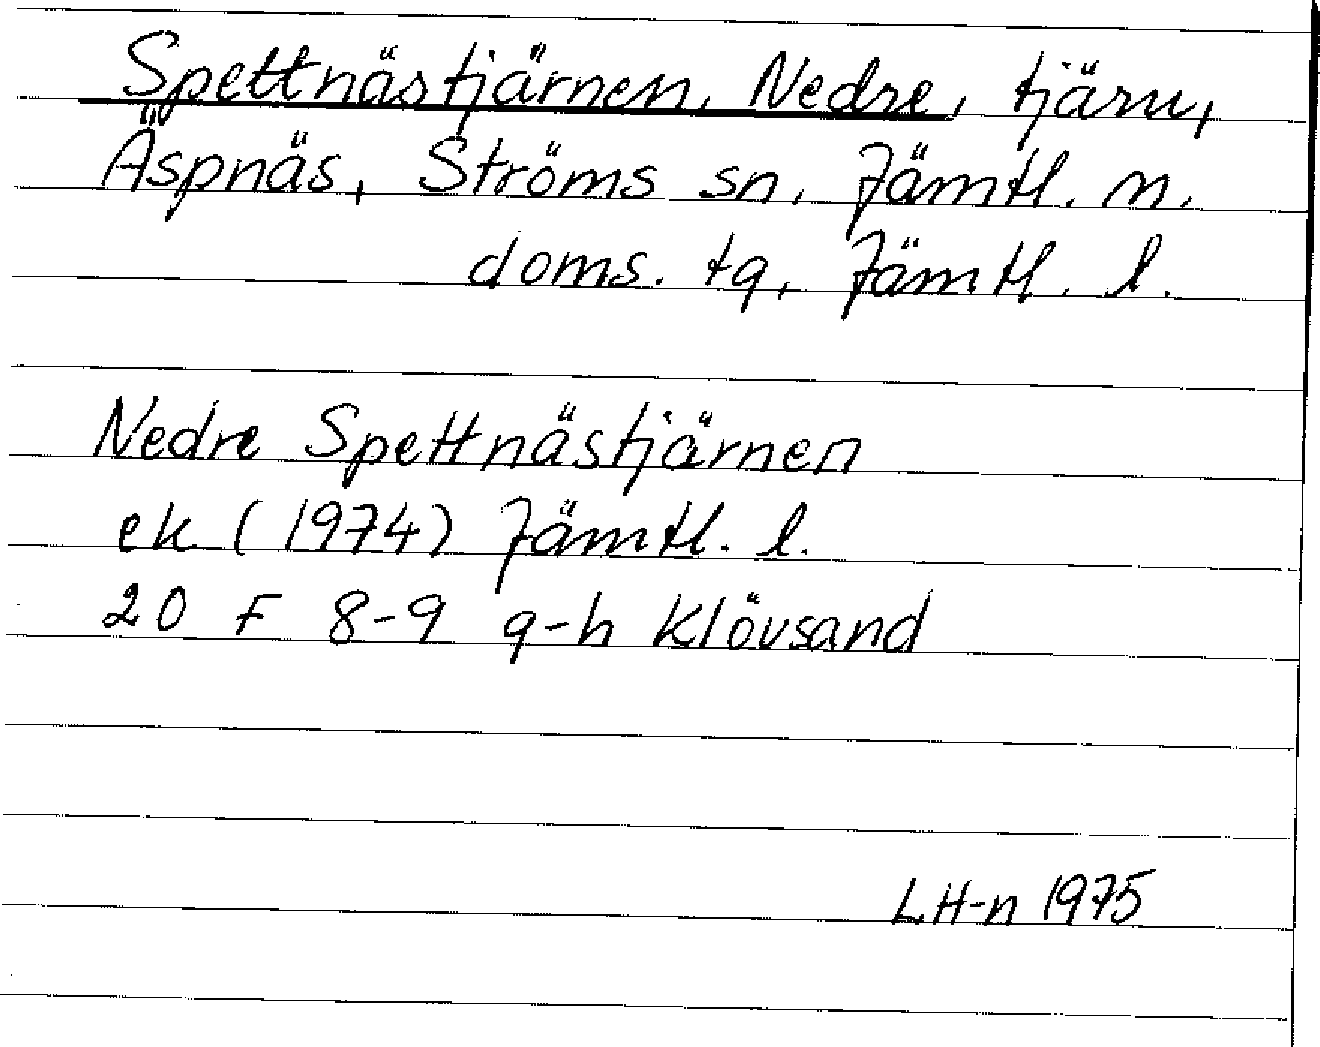 Spettnästjärnen, Nedre, tjärn,
Äspnäs, Ströms sn, Jämtl. n.
doms. tg, Jämtl. l.
Nedre Spettnästjärnen
ek (1974) Jämtl. l.
20 F 8-9 g-h Klövsand
LH-n 1975